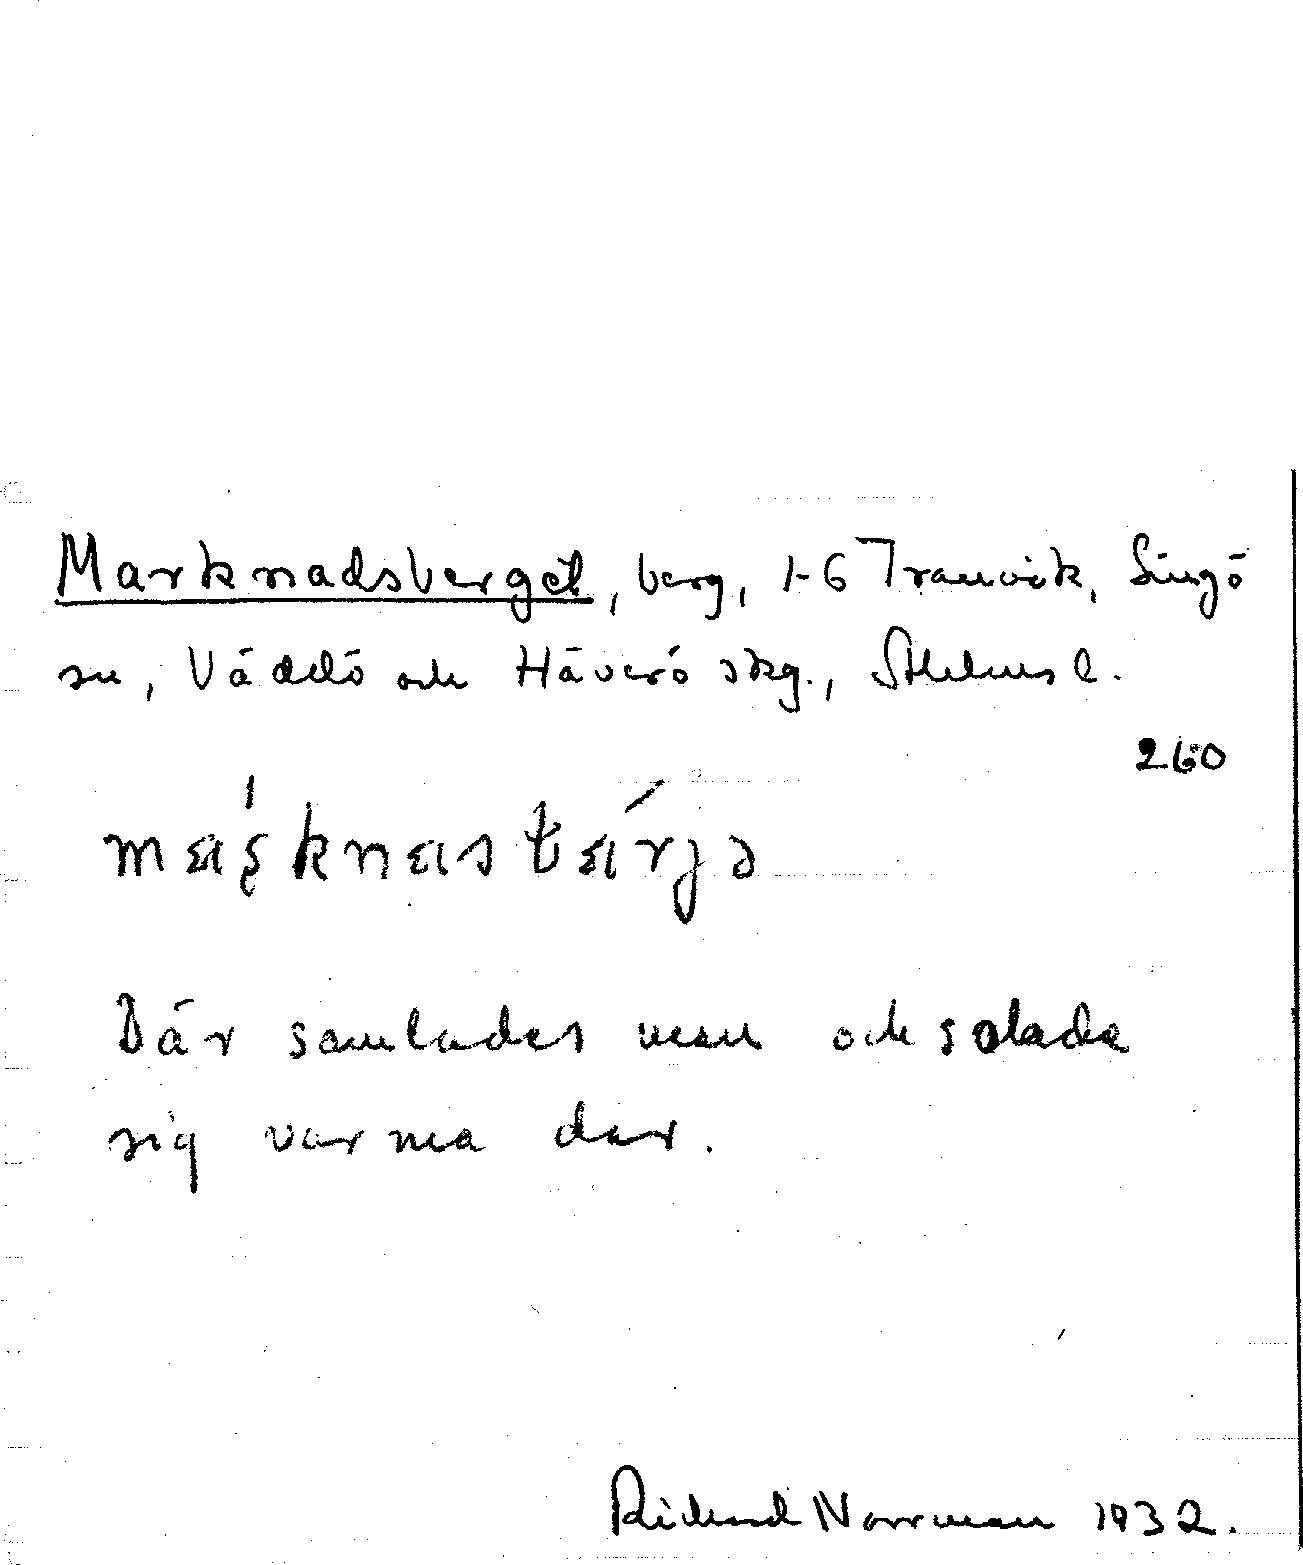 Marknadsberget, berg, 1-6 Tranvik, Singö
sn, Väddö och Häverö skg., Sthlms l.
260
Där samlades man och solade
sig varma dar.
Richard Norrman 1932.